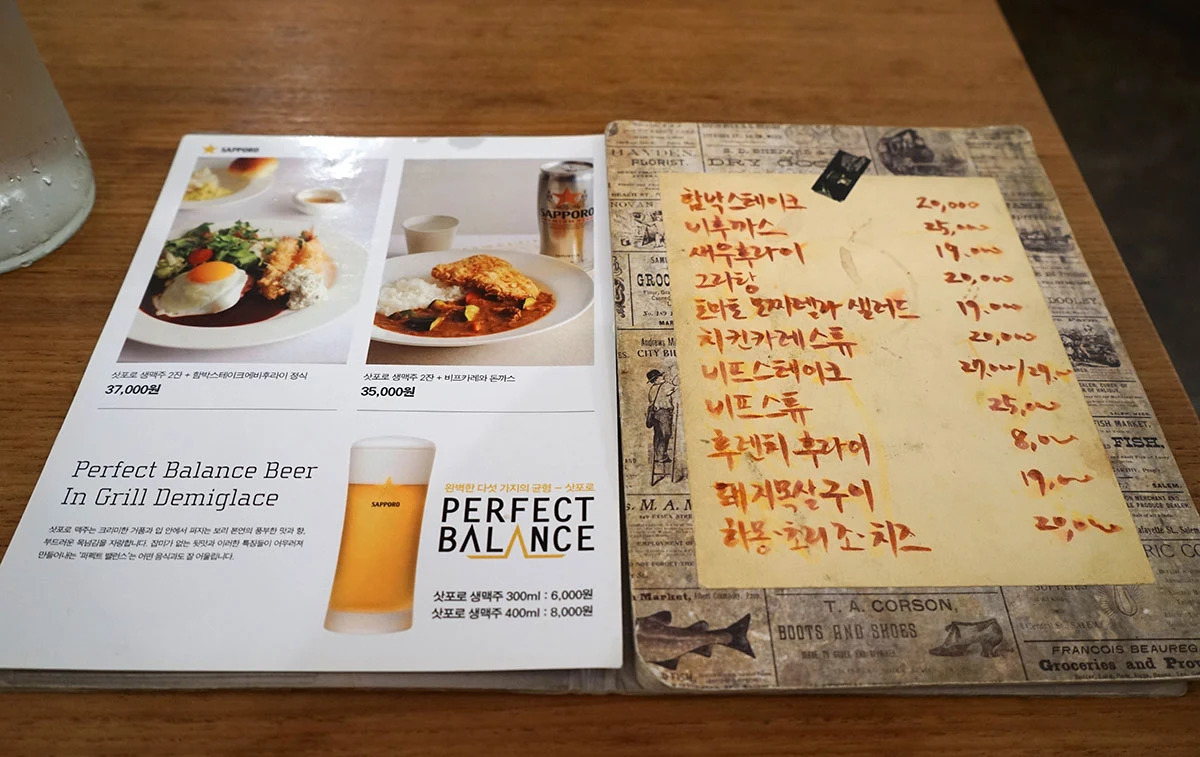 SAPPORO
SAPPORO
삿포로 생맥주 2잔 + 함박스테이크에비후라이 정식
37,000원
삿포로 생맥주 2잔 + 비프카레와 돈까스
35,000원
Perfect Balance Beer
In Grill Demiglace
삿포로 맥주는 크리미한 거품과 입 안에서 퍼지는 보리 본연의 풍부한 맛과 향,
부드러운 목넘김을 자랑합니다. 잡미가 없는 뒷맛과 이러한 특징들이 어우러져
만들어내는 '퍼펙트 밸런스'는 어떤 음식과도 잘 어울립니다.
SAPPORO
완벽한 다섯 가지의 균형 – 삿포로
PERFECT
BALANCE
삿포로 생맥주 300ml : 6,000원
삿포로 생맥주 400ml : 8,000원
함박스테이크 20,000
비후까스 25,000
새우후라이 19,000
그라탕 20,000
토마토 모짜렐라 샐러드 19,000
치킨카레스튜 20,000
비프스테이크
비프스튜 25,000
후렌치 후라이 8,000
돼지목살구이 19,000
하몽·쵸리조·치즈 20,000
HAYDEN
FLORIST
DRY GOO
CITY BI
FISH MARKET,
FISH.
SALEM.
M. A.
Market,
T. A. CORSON,
BOOTS AND SHOES
FRANCOIS BEAUREG
Groceries and Pro